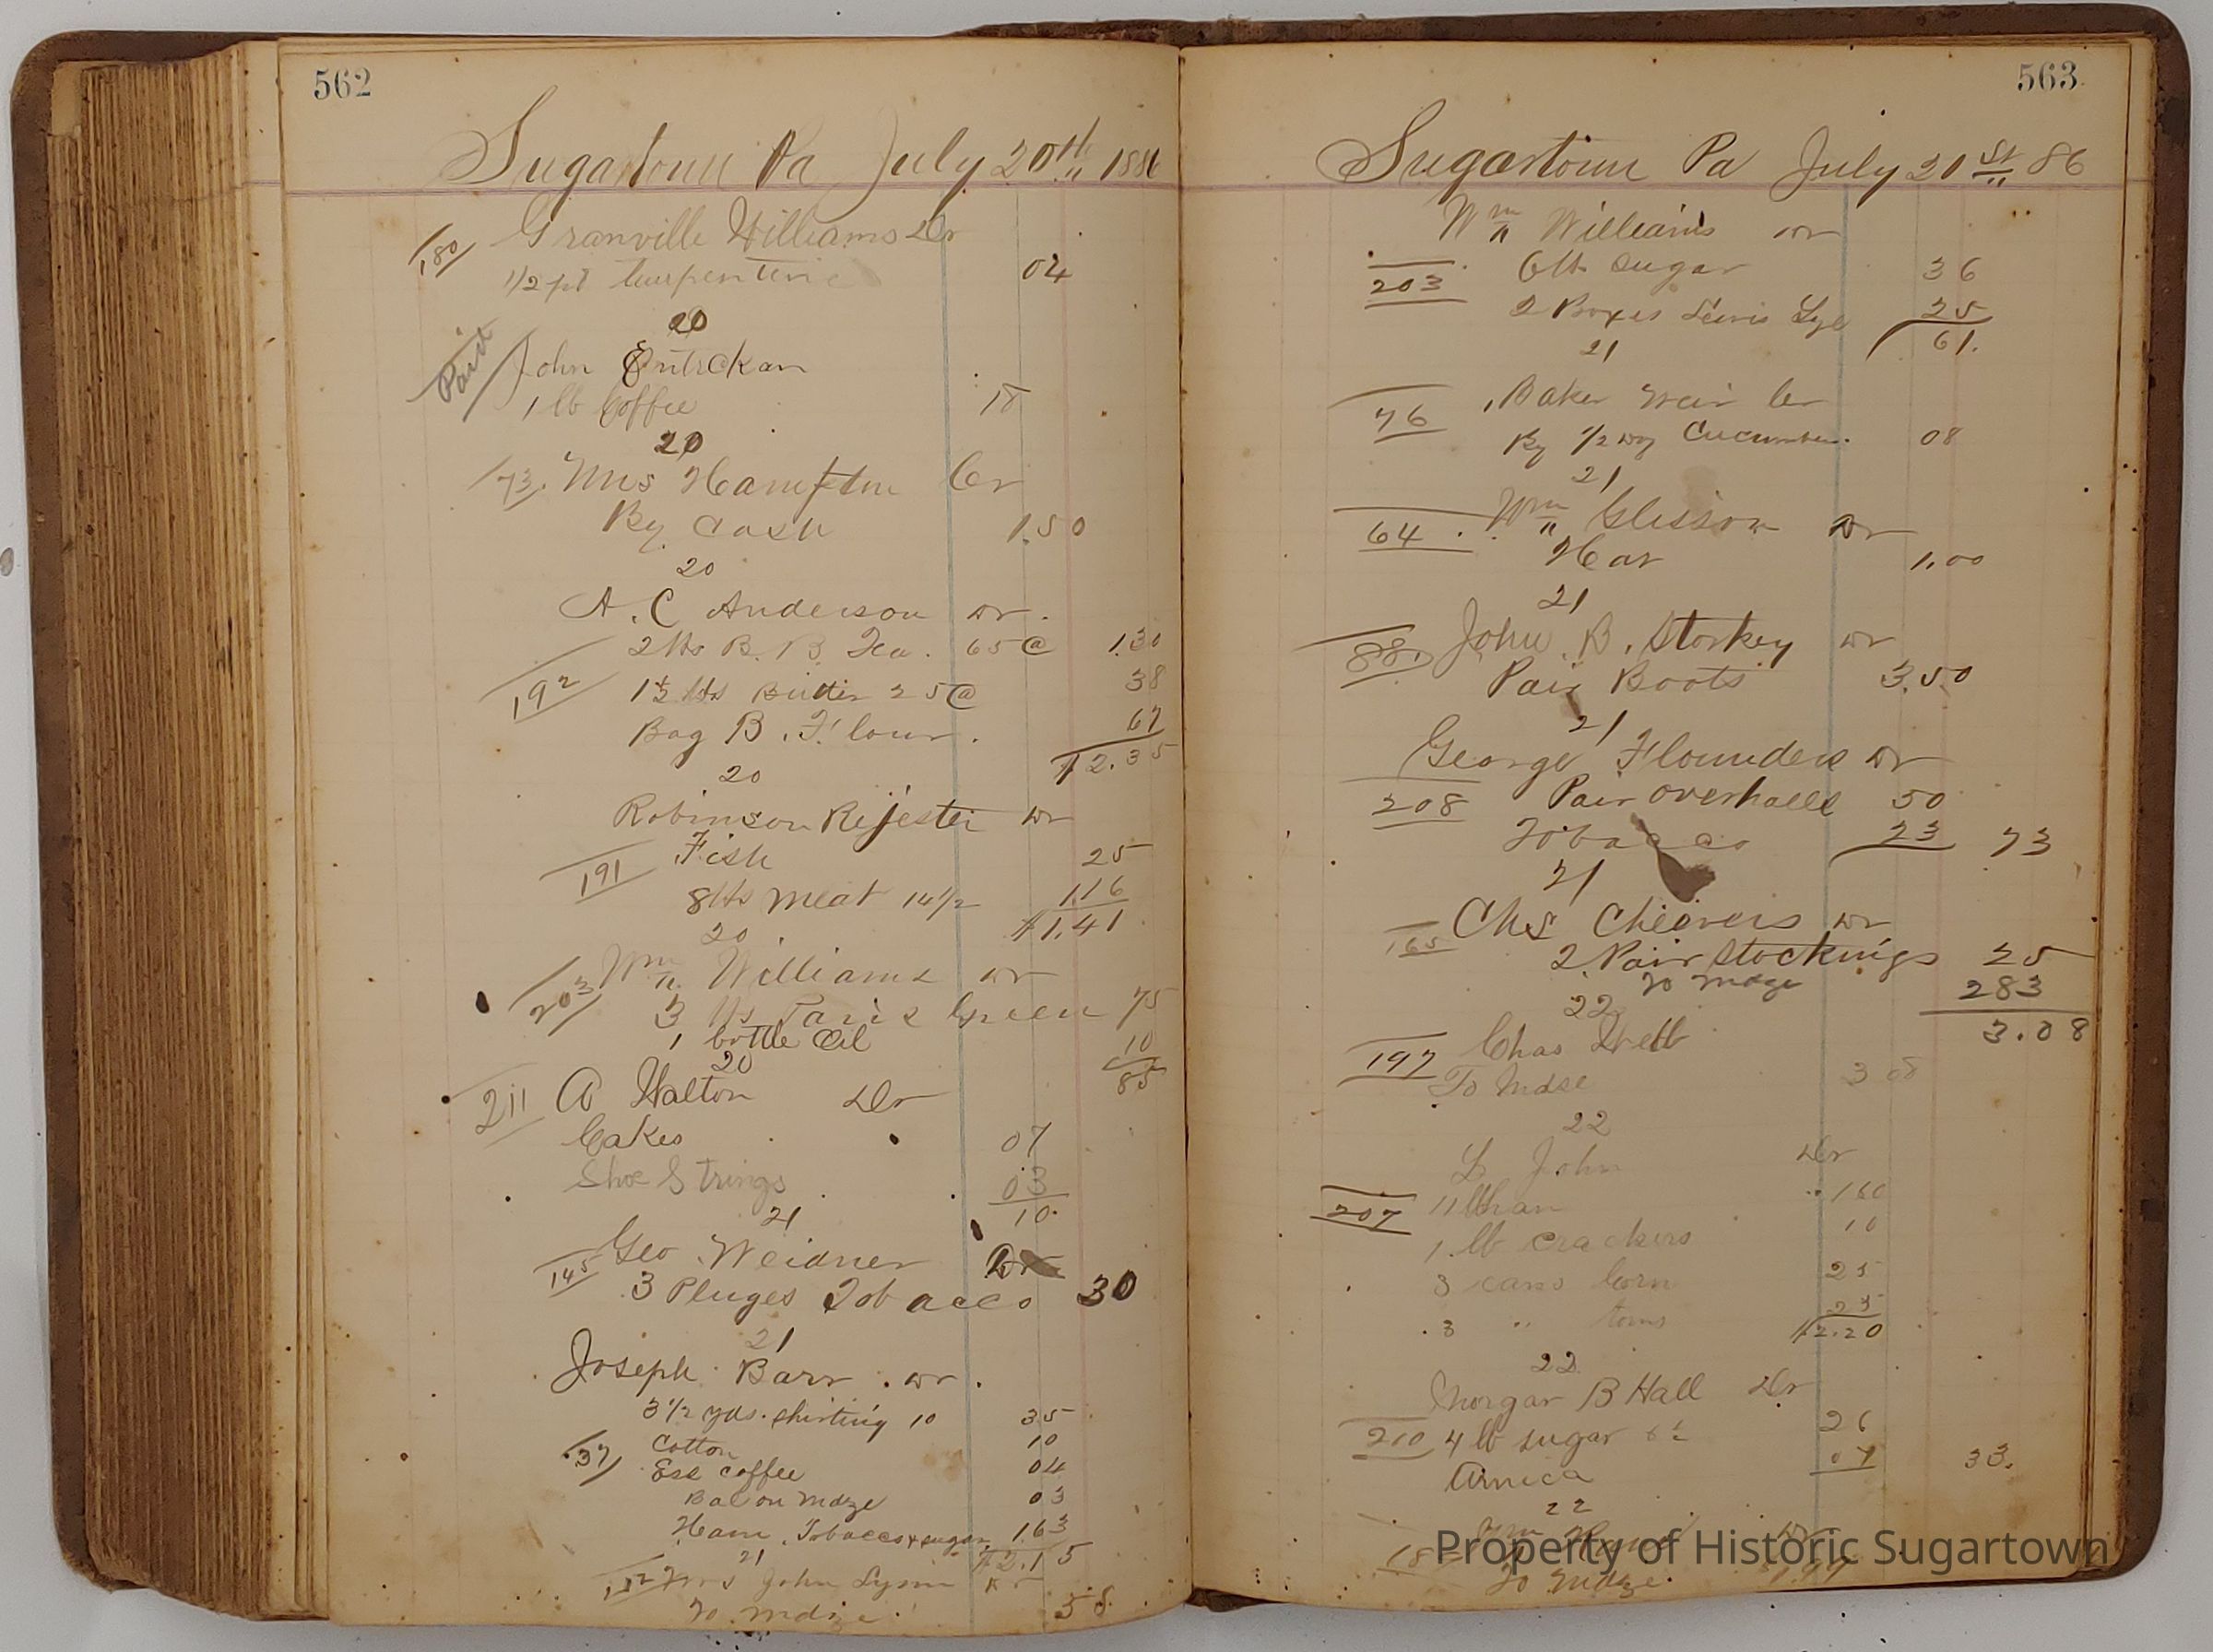 562
Sugartown Pa July 20th 1886
180 Granville Williams Dr
1/2 pt turpentine 04
20
Paid John Entrekan
1 lb Coffee 18
20
73. Mrs Hampton Cr
By Cash 1.50
20
A. C Anderson Dr.
2 lbs B. B. Tea. 65 @ 1.30
192 1 1/2 lbs Butter 25 @ 38
Bag B. Flour. 67
$2.35
20
Robinson Rejester Dr
191 Fish 25
8 lbs Meat 14 1/2 1.16
$1.41
20
203 Wm Williams Dr
3 lbs Paris Green 75
1 bottle Oil 10
85
20
211 A Walton Dr
Cakes 07
Shoe Strings 03
10.
21
145 Geo. Weidner Dr
3 Pluges Tobacco 30
21
Joseph Barr. Dr.
3 1/2 yds. shirting 10 35
37 Cotton 10
Ess Coffee 04
Bal on Mdze 03
Ham, Tobacco + sugar 1.63
$2.15
21
Mrs John Dr
To Mdze. 58.
563
Sugartown Pa July 21st 86
Wm Williams Dr
203 6 lb Sugar 36
2 Boxes Lewis Lye 25
61.
21
76 Baker Weir Cr
By 1/2 doz Cucumber. 08
21
64. Wm Glisson Dr
Hat 1.00
21
88. John B. Storkey Dr
Pair Boots 3.50
21
George Flounders Dr
208 Pair overhalls 50
Tobacco 23 73
21
165 Chs Cheavers Dr
2 Pair Stockings 25
To Mdze 283
3.08
22
197 Chas
To Mdse 3 08
22
L John Dr
207 11 lb ham 1 60
1 lb crackers 10
3 cans Corn 25
3 " toms 25
$2.20
22
Morgan B Hall Dr
210 4 lb sugar 6 1/2 26
Arnica 07 33.
22
Wm Dr
To Mdze.
Property of Historic Sugartown